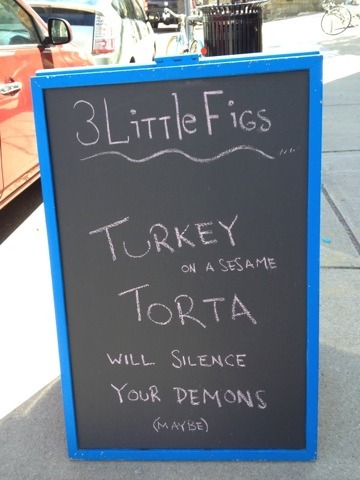 3 LiTTle FiGS
TURKEY
ON A SESAME
TORTA
WILL SILENCE
YOUR DEMONS
(MAYBE)